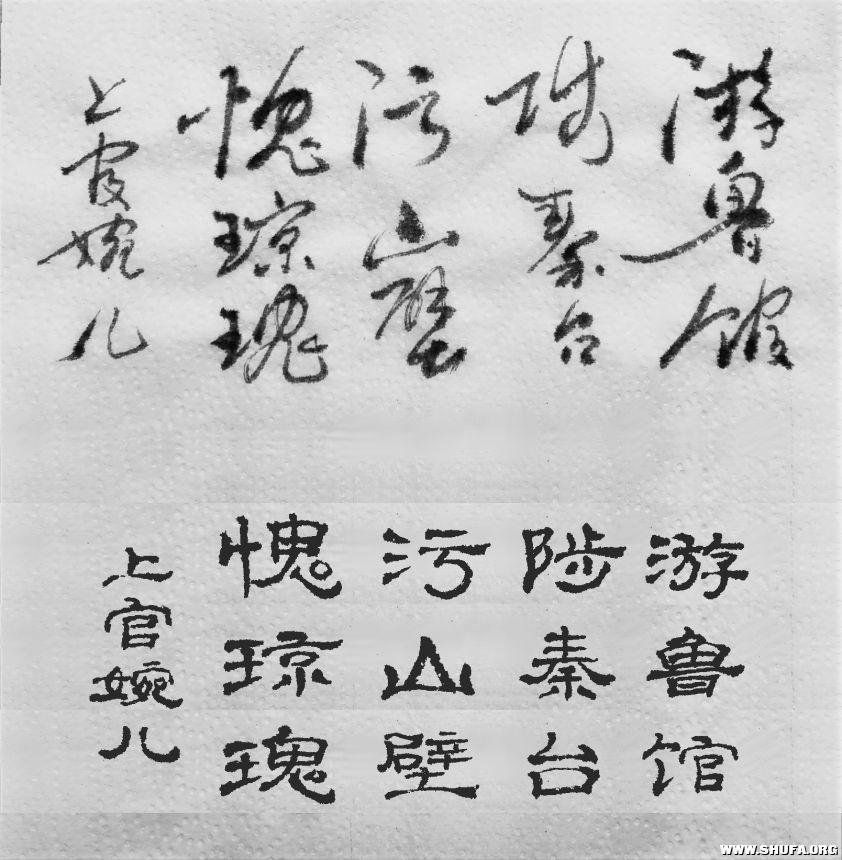 游鲁馆
陟秦台
污山壁
愧琼瑰
上官婉儿
游鲁馆
陟秦台
污山壁
愧琼瑰
上官婉儿
WWW.SHUFA.ORG